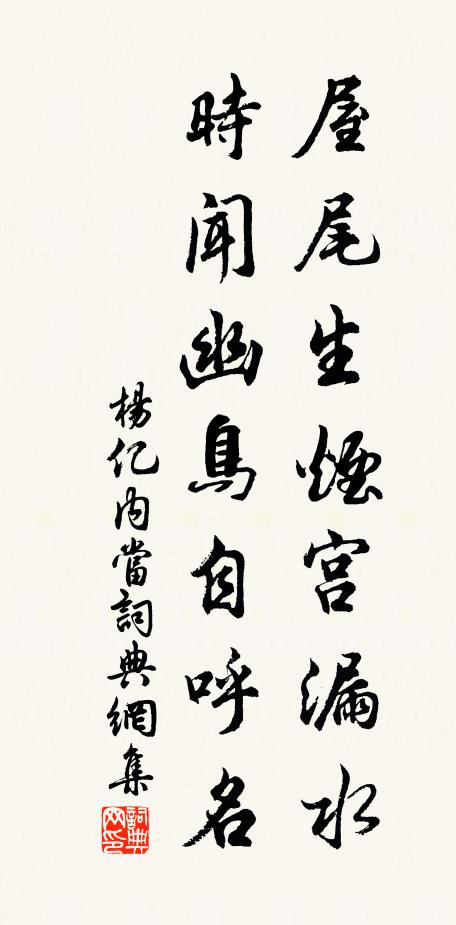 屋尾生煙宫漏水
時聞幽鳥自呼名
楊亿内當詞典網集
詞典
网印